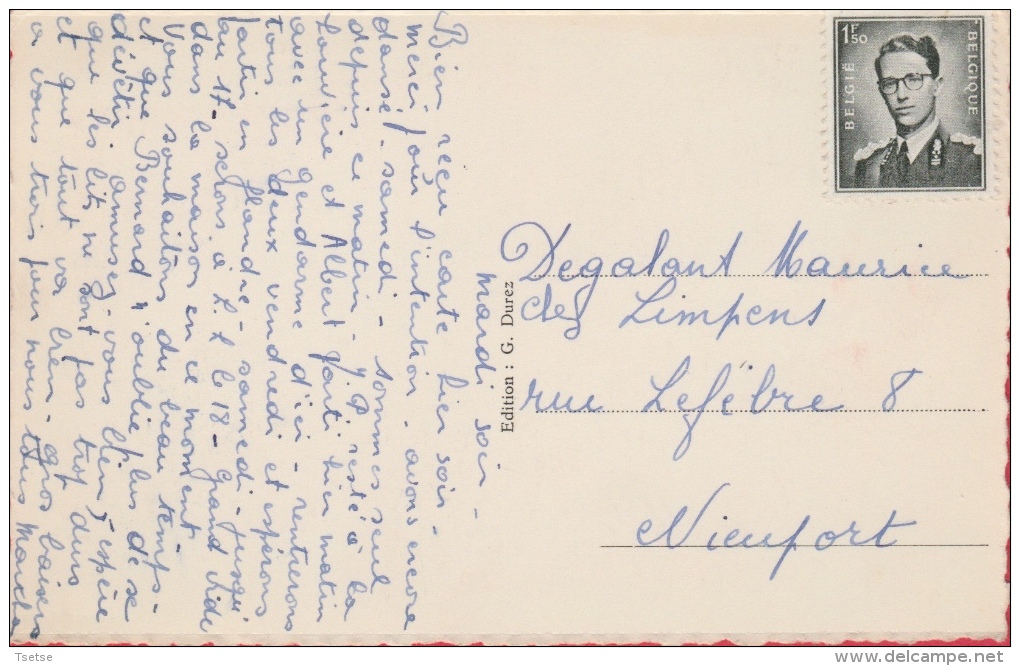 mardi soir -
Bien reçu carte hier soir -
merci pour l'intention. avons encore
dansé samedi - sommes seul
depuis ce matin - J.P. resté à la
Louvière et Albert parti hier matin
avec un gendarme d'ici - rentrerons
tous les deux vendredi et espérons
partir en flandre - samedi - jusqu'
au 17 - serons à L.L. le 18 - grand vide
dans la maison en ce moment
Vous souhaitons du beau temps -
et que Bernard n'oublie plus de se
dévêtir. amusez-vous bien j'espère
que les lits ne sont pas trop durs
et que tout va bien - gros baisers
à vous trois pour nous tous
BELGIË 1F50 BELGIQUE
Degalant Maurice
Limpens
rue Lefébre 8
Nieuport
Edition : G. Durez
Tsetse
delcampe.net